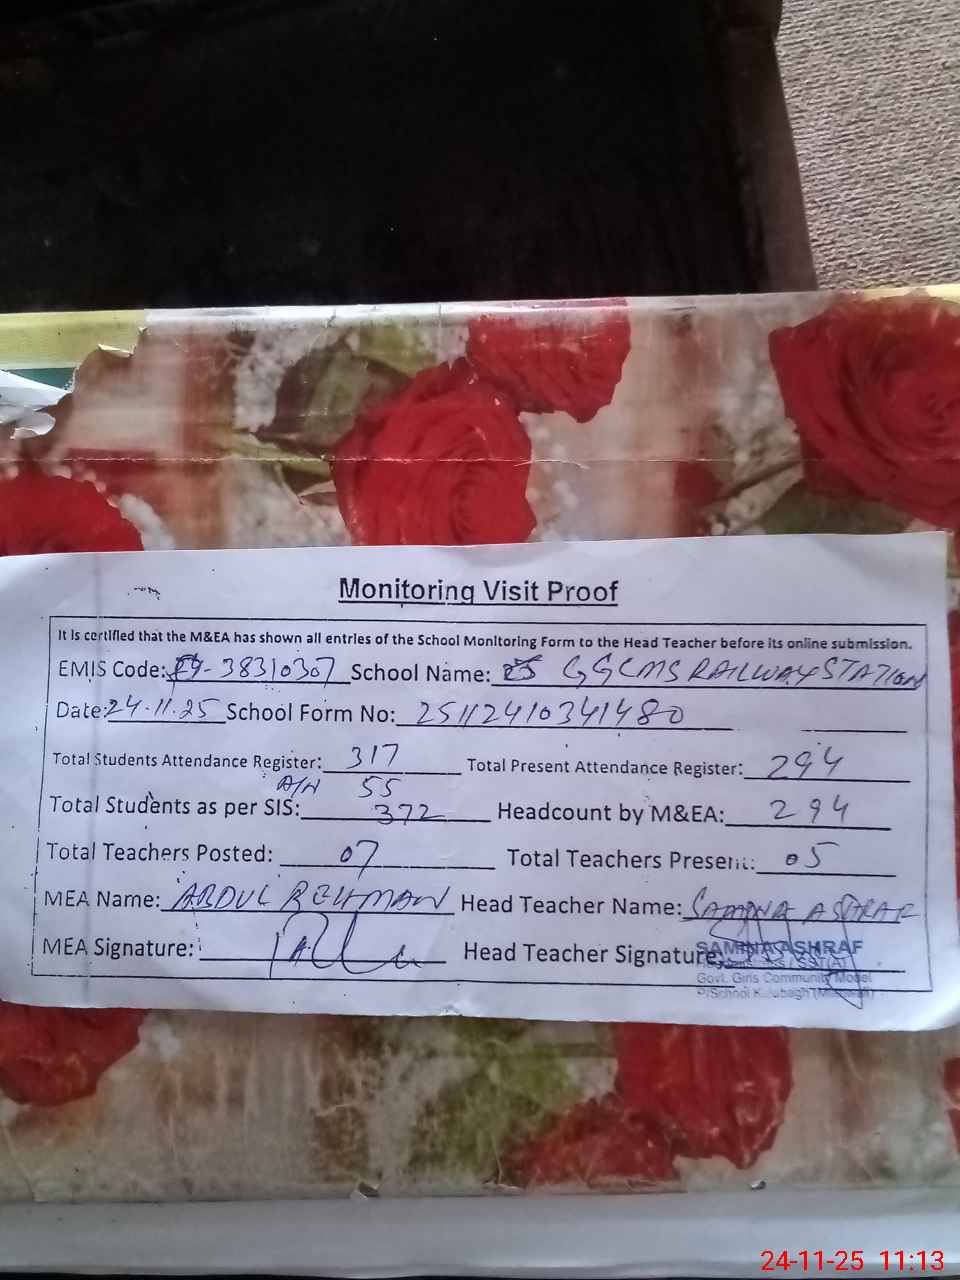 Monitoring Visit Proof
It is certified that the M&EA has shown all entries of the School Monitoring Form to the Head Teacher before its online submission.
EMIS Code: 38310307 School Name: GGCMS RAILWAY STATION
Date: 24.11.25 School Form No: 25112410341480
Total Students Attendance Register: 317 Total Present Attendance Register: 294
A/N 55
Total Students as per SIS: 372 Headcount by M&EA: 294
Total Teachers Posted: 07 Total Teachers Present: 05
MEA Name: ABDUL REHMAN Head Teacher Name: SAMINA ASHRAF
MEA Signature: Head Teacher Signature:
SAMINA ASHRAF
Govt. Girls Community Model
School
24-11-25 11:13